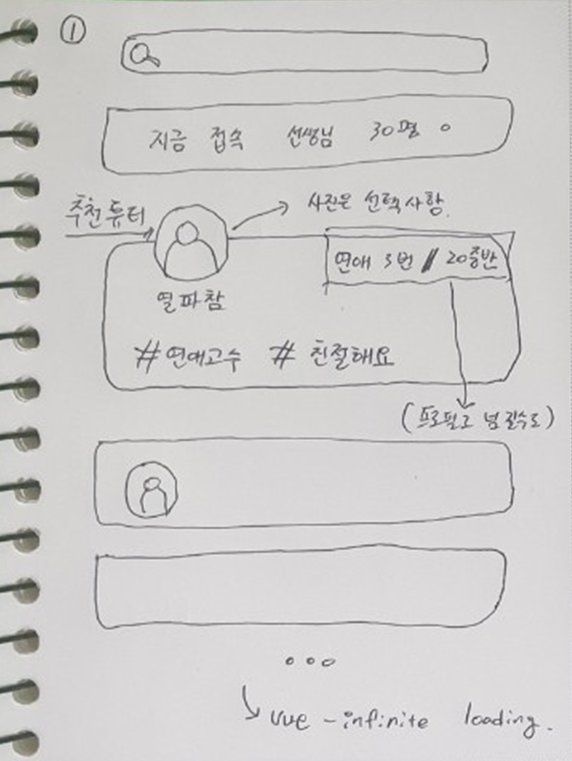 ①
지금 접속 선생님 30명 o
추천튜터
사진은 선택사항.
연애 3번 // 20중반
열파참
#연애고수 # 친절해요
(프로필로 넘길수도)
ooo
vue-infinite loading.